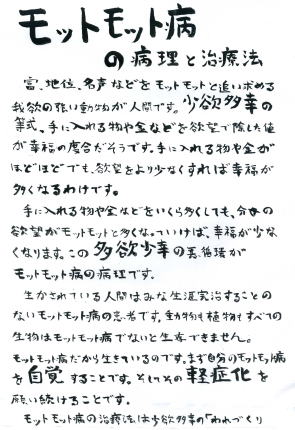 モットモット病
の病理と治療法
富、地位、名声などをモットモットと追い求める
我欲の強い動物が人間です。少欲多幸の
等式、手に入れる物や金などを欲望で除した値
が幸福の度合だそうです。手に入れる物や金が
ほどほどでも、欲望をより少なくすれば幸福が
多くなるわけです。
手に入れる物や金などをいくら多くしても、分母の
欲望がモットモットと多くなっていけば、幸福が少な
くなります。この多欲少幸の悪循環が
モットモット病の病理です。
生かされている人間はみな生涯完治することの
ないモットモット病の患者です。動物も植物もすべての
生物はモットモット病でないと生存できません。
モットモット病だから生きているのです。まず自分のモットモット病
を自覚することです。そしてその軽症化を
願い続けることです。
モットモット病の治療法は少欲多幸の「われづくり